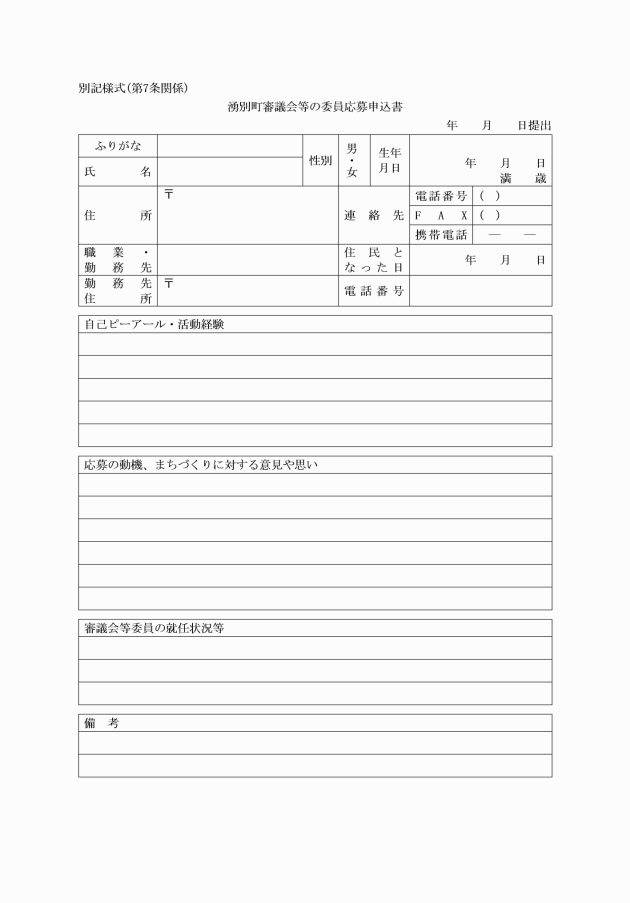 別記様式(第7条関係)
湧別町審議会等の委員応募申込書
年 月 日提出
ふりがな
氏 名
性別
男・女
生年月日
年 月 日
満 歳
住 所
〒
連 絡 先
電話番号 ( )
F A X ( )
携帯電話 ― ―
職業・
勤務先
住民と
なった日
年 月 日
勤務先
住 所
〒
電話番号
自己ピーアール・活動経験
応募の動機、まちづくりに対する意見や思い
審議会等委員の就任状況等
備 考